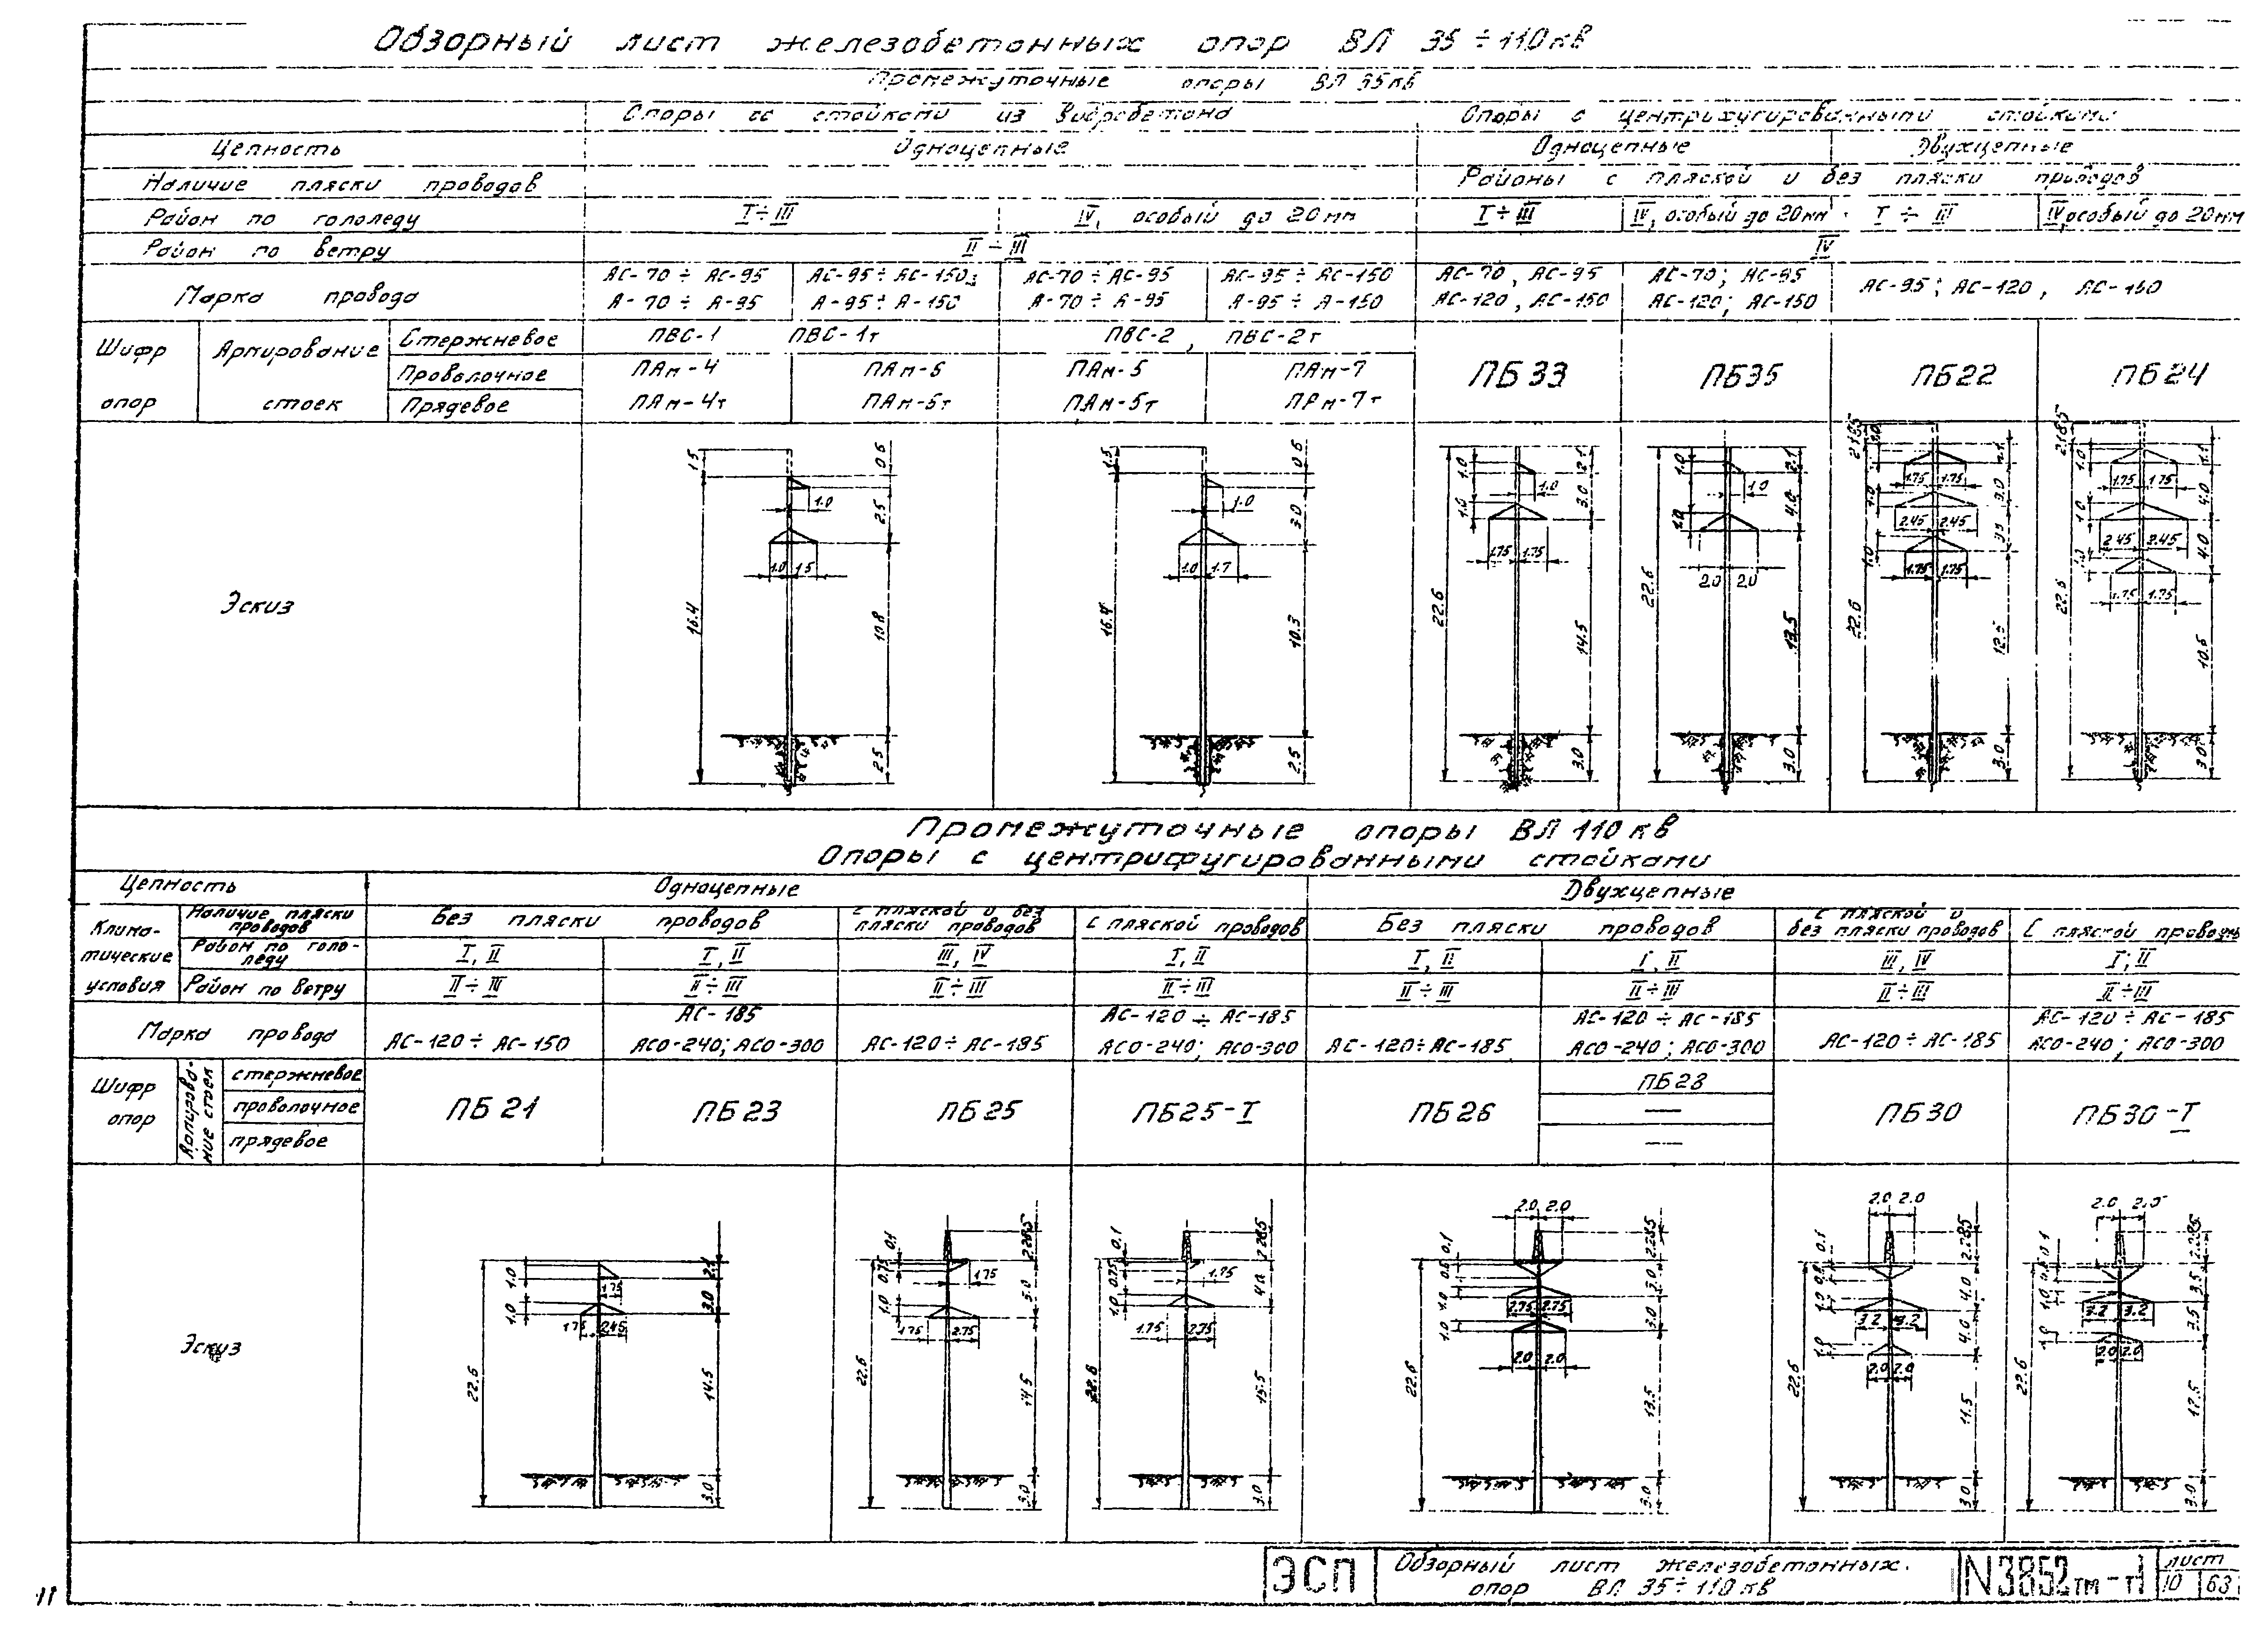 Обзорный лист железобетонных опор ВЛ 35÷110кв
Промежуточные опоры ВЛ 35кв
Опоры со стойками из вибробетона
Опоры с центрифугированными стойками
Цепность
Одноцепные
Одноцепные
Двухцепные
Наличие пляски проводов
Районы с пляской и без пляски проводов
Район по гололеду
I÷III
IV, особый до 20мм
I÷III
IV, особый до 20мм
I ÷ III
IV, особый до 20мм
Район по ветру
II - III
IV
Марка провода
АС-70 ÷ АС-95
А-70 ÷ А-95
АС-95 ÷ АС-150;
А-95 ÷ А-150
АС-70 ÷ АС-95
А-70 ÷ А-95
АС-95 ÷ АС-150
А-95 ÷ А-150
АС-70, АС-95
АС-120, АС-150
АС-70; АС-95
АС-120; АС-150
АС-95; АС-120,
Шифр опор
Армирование стоек
Стержневое
ПВС-1
ПВС-1т
ПВС-2, ПВС-2т
Проволочное
ПАм-4
ПАм-5
ПАм-7
Прядевое
ПАм-4т
ПАм-5т
ПБ33
ПБ35
ПБ22
ПБ24
Эскиз
1.5
16.4
0.6
1.0
2.5
1.0
1.5
10.8
2.5
1.5
16.4
0.6
1.0
3.0
1.0
1.7
10.3
2.5
22.6
1.0
1.0
2.1
1.0
3.0
1.75
1.75
14.5
3.0
22.6
1.0
1.0
2.1
1.0
4.0
2.0
2.0
13.5
3.0
22.6
1.0
1.75
1.75
2.45
2.45
1.75
1.75
12.5
3.0
22.6
1.0
1.1
1.75
1.75
4.0
2.45
2.45
4.0
1.75
1.75
10.5
3.0
Промежуточные опоры ВЛ 110кв
Опоры с центрифугированными стойками
Цепность
Одноцепные
Двухцепные
Климатические условия
Наличие пляски проводов
Без пляски проводов
с пляской и без пляски проводов
С пляской проводов
Без пляски проводов
с пляской и без пляски проводов
С пляской проводов
Район по гололеду
I, II
I, II
III, IV
I, II
I, II
I, II
III, IV
I; II
Район по ветру
II ÷ III
II ÷ III
II ÷ III
II ÷ III
II ÷ III
II ÷ III
II ÷ III
II ÷ III
Марка провода
АС-120 ÷ АС-150
АС-185
АСО-240; АСО-300
АС-120 ÷ АС-185
АС-120 ÷ АС-185
АСО-240; АСО-300
АС-120÷АС-185
АС-120 ÷ АС-185
АСО-240; АСО-300
АС-120 ÷ АС-185
АС-120 ÷ АС-185
АСО-240; АСО-300
Шифр опор
Армирование стоек
стержневое
проволочное
прядевое
ПБ21
ПБ23
ПБ25
ПБ25-I
ПБ26
ПБ28
—
—
ПБ30
ПБ30-I
Эскиз
22.6
1.0
1.0
1.75
1.75
2.45
3.0
14.5
3.0
22.6
0.1
0.75
1.0
1.75
1.75
2.75
5.0
14.5
3.0
22.6
0.1
0.75
1.0
1.75
1.75
2.75
4.0
15.5
3.0
22.6
0.1
1.0
1.0
2.0
2.0
2.75
2.75
2.0
2.0
3.0
3.0
13.5
3.0
22.6
0.1
1.0
2.0
2.0
3.2
3.2
2.0
2.0
4.0
4.0
11.5
3.0
22.6
1.0
2.0
2.0
3.2
3.2
2.0
2.0
3.5
3.5
12.5
3.0
ЭСП
Обзорный лист железобетонных
опор ВЛ 35÷110кв
N3852тм-т1
лист
10
63
11